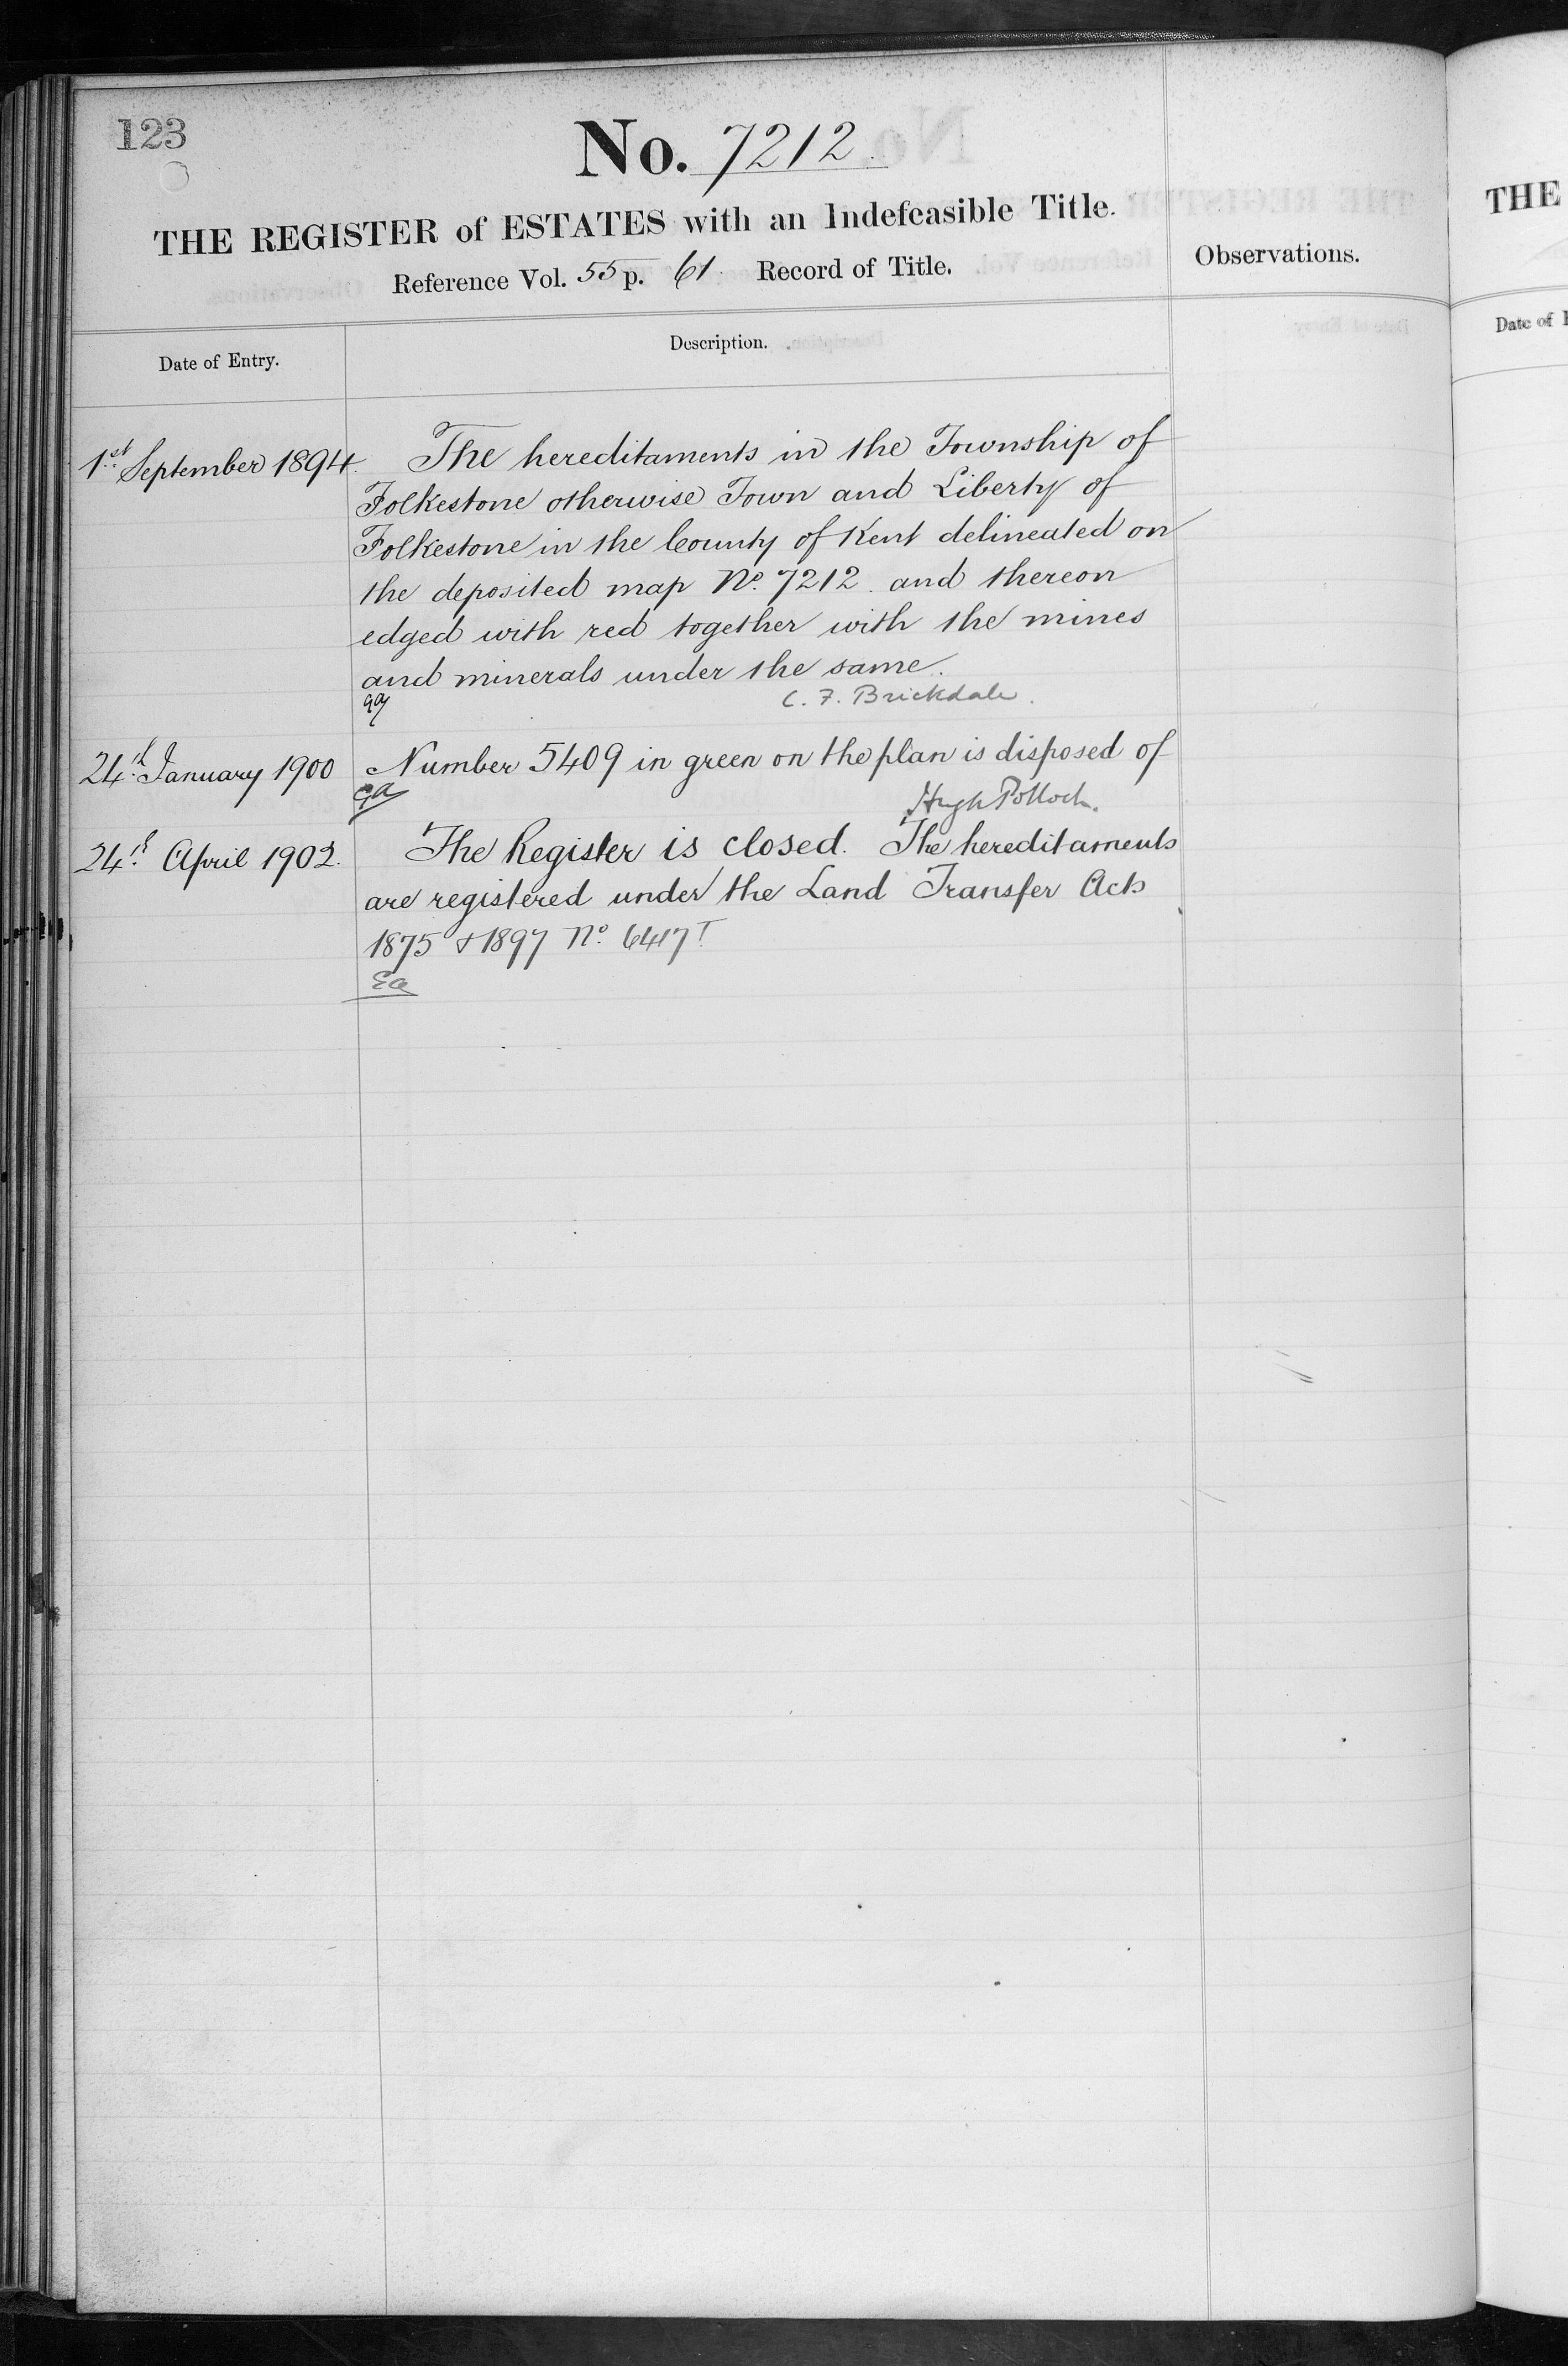 123
No. 7212.
THE REGISTER of ESTATES with an Indefeasible Title.
Reference Vol. 55 p. 61. Record of Title.
Observations.
Date of Entry.
Description.
1st September 1894.
The hereditaments in the Township of
Folkestone otherwise Town and Liberty of
Folkestone in the County of Kent delineated on
the deposited map No. 7212. and thereon
edged with red together with the mines
and minerals under the same.
C. F. Brickdale.
24th January 1900
Number 5409 in green on the plan is disposed of
Hugh Pollock.
24th April 1902.
The Register is closed. The hereditaments
are registered under the Land Transfer Acts
1875 & 1897 No. 6417T
Ea
THE
Date of